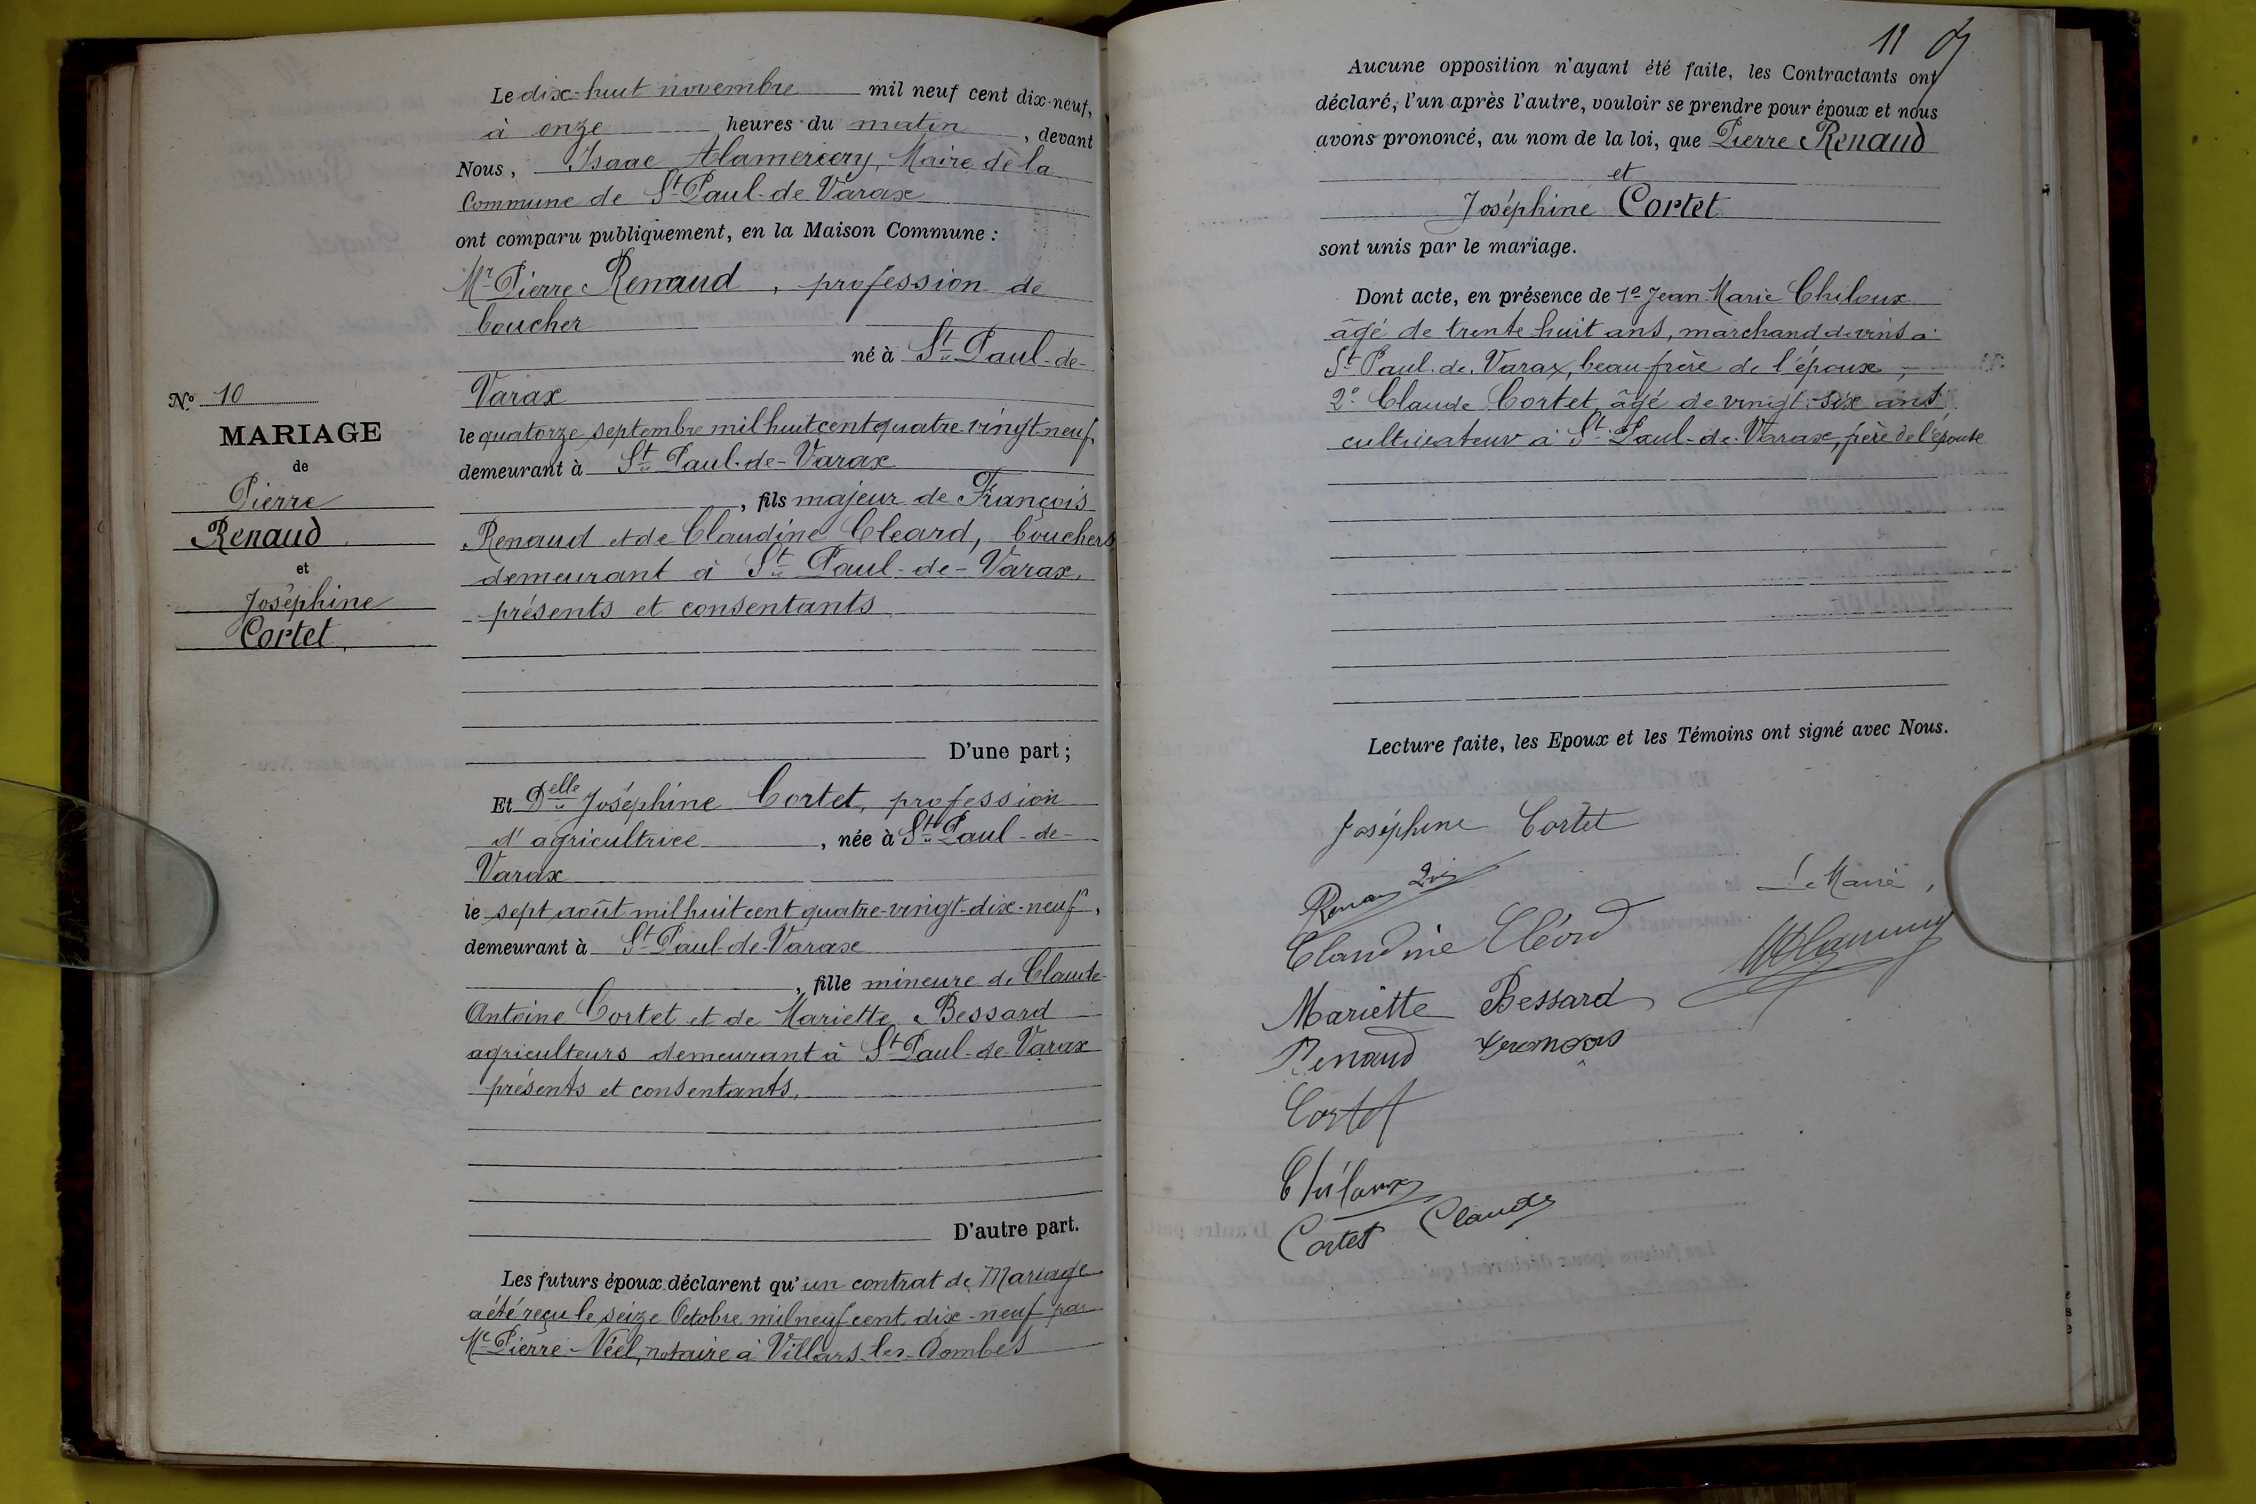 Le dix-huit novembre mil neuf cent dix-neuf,
à onze heures du matin, devant
Nous, Isaac Alamercery, Maire de la
Commune de St Paul-de-Varax
ont comparu publiquement, en la Maison Commune :
Mr Pierre Renaud, profession de
boucher
né à St Paul-de-
Varax
le quatorze septembre mil huit cent quatre-vingt-neuf,
demeurant à St Paul-de-Varax
, fils majeur de François
Renaud et de Claudine Cleard, bouchers
demeurant à St Paul-de-Varax,
présents et consentants
D'une part ;
Et Delle Joséphine Cortet, profession
d'agricultrice, née à St Paul-de-
Varax
le sept août mil huit cent quatre-vingt-dix-neuf,
demeurant à St Paul-de-Varax
, fille mineure de Claude
Antoine Cortet et de Mariette Bessard
agriculteurs demeurant à St Paul-de-Varax
présents et consentants,
D'autre part.
Les futurs époux déclarent qu'un contrat de Mariage
a été reçu le seize Octobre mil neuf cent dix-neuf par
Me Pierre Véel, notaire à Villars-les-Dombes
N° 10
MARIAGE
de
Pierre
Renaud
et
Joséphine
Cortet
11
Aucune opposition n'ayant été faite, les Contractants ont
déclaré, l'un après l'autre, vouloir se prendre pour époux et nous
avons prononcé, au nom de la loi, que Pierre Renaud
et
Joséphine Cortet
sont unis par le mariage.
Dont acte, en présence de 1° Jean-Marie Chiloux
âgé de trente huit ans, marchand de vins à
St Paul-de-Varax, beau-frère de l'épouse,
2° Claude Cortet âgé de vingt-six ans
cultivateur à St Paul-de-Varax, frère de l'épouse
Lecture faite, les Epoux et les Témoins ont signé avec Nous.
Joséphine Cortet
Renaud
Le Maire,
Claudine Cléard
Mariette Bessard
Renaud François
Cortet
Chiloux
Cortet Claude